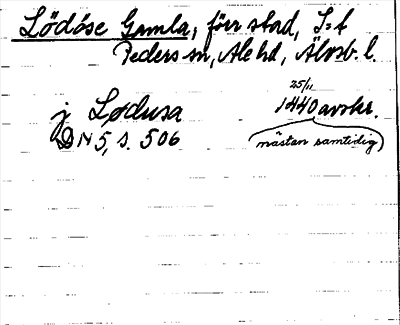 Lödöse Gamla, förr stad, S:t
Peders sn, Ale hd, Älvsb. l.
25/11
j Lødusa 1440 avskr.
DN 5, s. 506 (nästan samtidig)